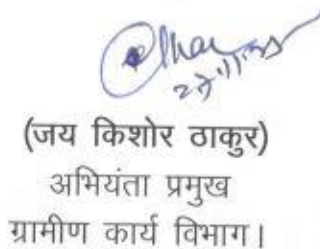 (जय किशोर ठाकुर)
अभियंता प्रमुख
ग्रामीण कार्य विभाग।